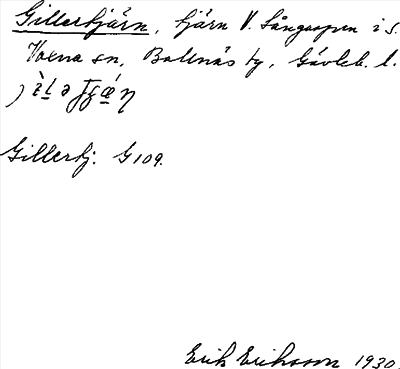 Gillertjärn, tjärn V. Långaspen i S.
Voxna sn, Bollnäs tg, Gävleb. l.
Gillertj. G109.
Erik Eriksson 1930.